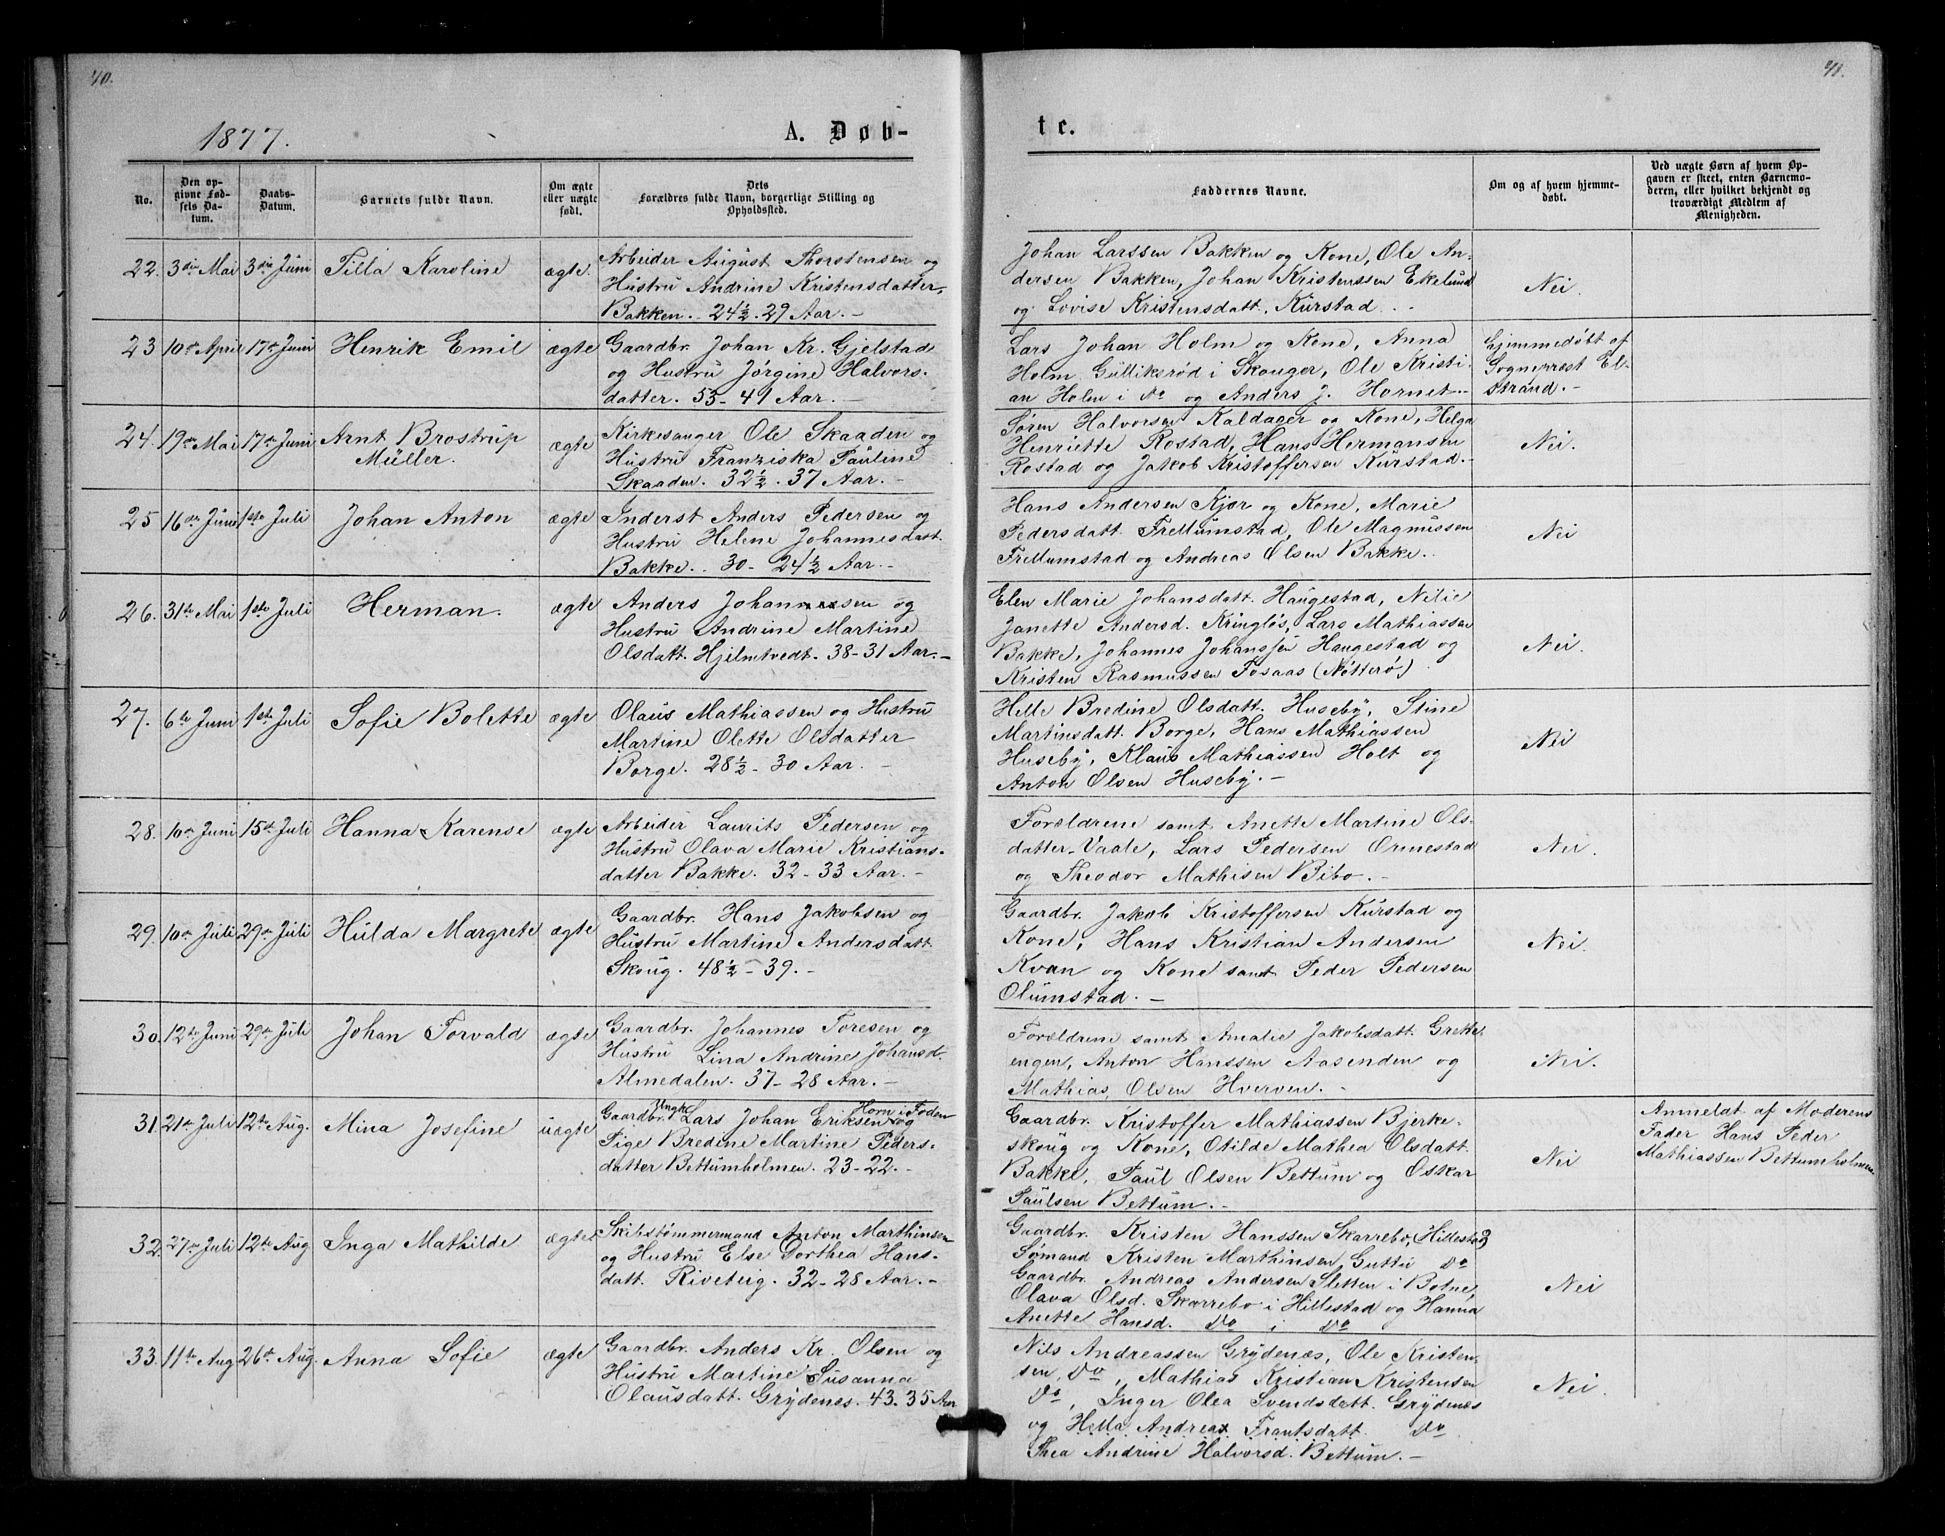 40.
1877.
A. Døb-
No.
Den op-
givne Fød-
sels Da-
tum.
Daabs-
Datum.
Barnets fulde Navn.
Om ægte
eller uægte
født.
Dets
Forældres fulde Navn, borgerlige Stilling og
Opholdssted.
22. 3die Mai 3die Juni Tilla Karoline ægte.
Arbeider August Thorstensen og
Hustru Andrine Kristensdatter,
Bakken. 24½. 29 Aar. -
23 10de April 17de Juni Henrik Emil ægte
Gaardbr. Johan Kr. Gjelstad
og Hustru Jørgine Halvors-
datter. 53 - 41 Aar. -
24. 19de Mai 17de Juni Arnt Brostrup
Müller. ægte
Kirkesanger Ole Skaaden og
Hustru Franziska Pauline
Skaaden. 32½. 37 Aar. -
25 16de Juni 1ste Juli Johan Anton ægte
Inderst Anders Pedersen og
Hustru Helene Johannesdatt.
Bakke. 30 - 24½ Aar. -
26. 31te Mai 1ste Juli Herman. ægte
Anders Johannessen og
Hustru Andrine Martine
Olsdatt. Hjelmtvedt. 38-31 Aar. -
27. 6te Juni 1ste Juli Sofie Bolette ægte
Olaus Mathiassen og Hustru
Martine Olette Olsdatter
Borge. 28½ - 30 Aar. -
28. 10de Juni 15de Juli Hanna Karense ægte
Arbeider Laurits Pedersen og
Hustru Olava Marie Kristians-
datter Bakke. 32 - 33 Aar. -
29. 10de Juli 29de Juli Hulda Margrete ægte
Gaardbr. Hans Jakobsen og
Hustru Martine Andersdatt.
Skoug. 48½ - 39. -
30. 12te Juni 29de Juli Johan Torvald ægte
Gaardbr. Johannes Toresen og
Hustru Lina Andrine Johansd.
Almedalen. 37 - 28 Aar. -
31. 21de Juli 12te Aug. Mina Josefine uægte
Ungk. Horn i Foden
Gaardbr. Lars Johan Eriksen og
Pige Bredine Martine Peders-
datter Bettumholmen. 23-22. -
32. 27de Juli 12te Aug Inga Mathilde ægte
Skibstømmermand Anton Marthinsen
og Hustru Else Dorthea Hans-
datt. Riveteig. 32 - 28 Aar. -
33. 11te Aug 26de Aug. Anna Sofie ægte
Gaardbr. Anders Kr. Olsen og
Hustru Martine Susanna
Olausdatt. Grydenes. 43. 35 Aar
41.
te.
Faddernes Navne.
Om og af hvem hjemme-
døbt.
Ved uægte Børn af hvem Op-
gaven er skeet, enten Barnemo-
deren, eller hvilket bekjendt og
troværdigt Medlem af
Menigheden.
Johan Larssen Bakken og Kone, Ole An-
dersen Bakken, Johan Kristenssen Ekelund
og Lovise Kristensdatt. Kurstad. -
Nei.
Lars Johan Holm og Kone, Anna
Holm Gulliksrød i Skouger, Ole Kristi-
an Holm i do og Anders J. Hornet. -
Hjemmedøbt af
Sognepræst El-
strand. -
Søren Halvorsen Kaldager og Kone, Helga
Henriette Rostad, Hans Hermansen
Rostad og Jakob Kristoffersen Kurstad. -
Nei.
Hans Andersen Kjør og Kone, Marie
Pedersdatt. Frellumstad, Ole Magnussen
Frellumstad og Andreas Olsen Bakke. -
Nei
Elen Marie Johansdatt. Haugestad, Nilie
Janette Andersd. Kringløs, Lars Mathiassen
Bakke, Johannes Johanssen Haugestad og
Kristen Rasmussen Fosaas (Nøtterø)
Nei.
Helle Bredine Olsdatt. Huseby, Stine
Martinsdatt. Borge, Hans Mathiassen
Huseby, Klaus Mathiassen Holt og
Anton Olsen Huseby. -
Nei
Forældrene samt Anette Martine Ols-
datter Vaale, Lars Pedersen Ormestad
og Theodor Mathisen Bibo. -
Nei.
Gaardbr. Jakob Kristoffersen Kurstad og
Kone, Hans Kristian Andersen
Kvan og Kone samt Peder Pedersen
Olumstad. -
Nei.
Forældrene samt Amalie Jakobsdatt. Grette-
engen, Anton Hanssen Aasenden og
Mathias Olsen Hverven. -
Nei.
Gaardbr. Kristoffer Mathiassen Bjerke-
skoug og Kone, Otilde Mathea Olsdatt.
Bakke, Paul Olsen Bettum og Oskar
Paulsen Bettum. -
Nei
Anmeldt af Moderens
Fader Hans Peder
Mathiassen Bettumholmen
Gaardbr. Kristen Hanssen Skarrebo, (Hillestad)
Sømand Kristen Marthinsen, Guttu do
Gaardbr. Andreas Andersen Sletten i Botne,
Olava Olsd. Skarrebo i Hillestad og Hanna
Anette Hansd. do i do
Nei
Nils Andreassen Grydenæs, Ole Kristen-
sen, do, Mathias Kristian Kristensen
do, Inger Olea Svendsdatt. Grydenæs
og Hella Andrea Frantsdatt. do
Thea Andrine Halvorsd. Bettum. -
Nei.